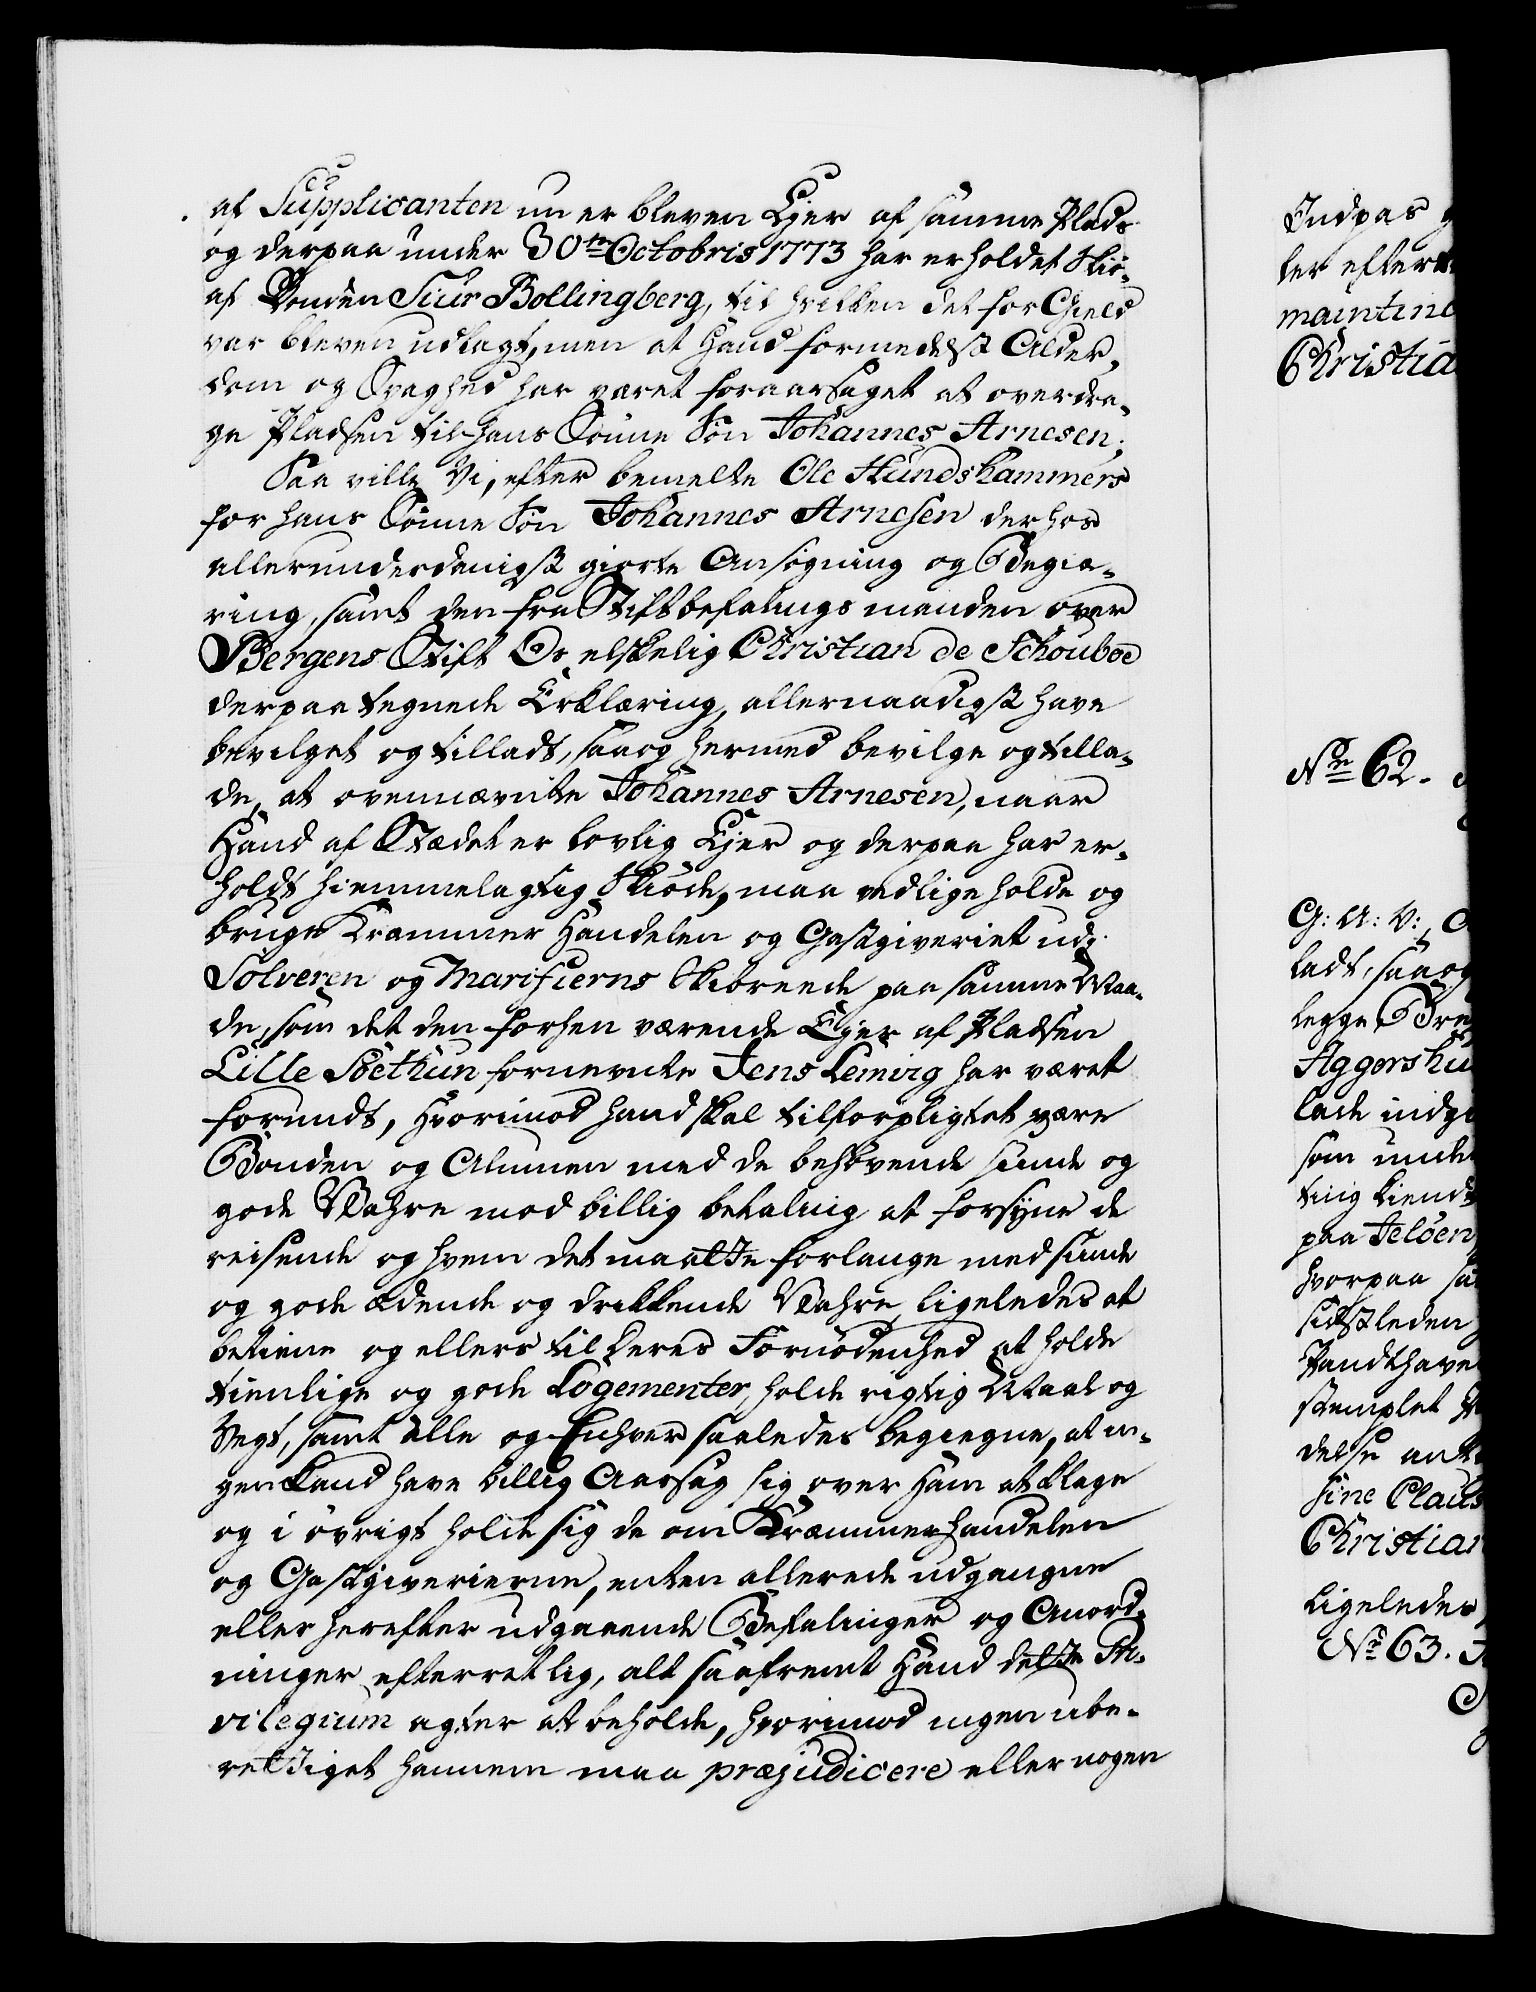 af Supplicanten nu er bleven Ejer af samme Plads
og derpaa under 30te Octobris 1773 har erholdet Skiö-
af Bonden Siur Bollingberg, til hvilken det for Gield
var bleven udlagt, men at Hand formedelst Alder-
dom og Svaghed har været foraarsaget at overdra-
ge Pladsen til hans Sönne Sön Johannes Arnesen;
Saa ville Vi, efter bemelte Ole Hundshammers
for hans Sönne Sön Johannes Arnesen derhos
allerunderdanigst giorte Ansögning og Begiæ-
ring, samt den fra Stiftbefalings manden over
Bergens Stift Os elskelig Christian de Schouboe
derpaa tegnede Erklæring, allernaadigst have
bevilget og tilladt, saa og hermed bevilge og tilla-
de, at ovennævnte Johannes Arnesen, naar
Hand af Stædet er lovlig Ejer og derpaa har er-
holdt hiemmelagtig Skiöde, maa vedligeholde og
bruge Kræmmer Handelen og Gastgiveriet udj
Solveren og Marifierns Skibreede paa samme Maa-
de, som det den forhen værende Ejer af Pladsen
Lille Söethun fornevnte Jens Lemvig har været
forundt, Hvorimod hand skal tilforpligtet være
Bonden og Almuen med de behövende sunde og
gode Vahre mod billig betaling at forsyne de
reisende og hvem det maatte forlange med sunde
og gode ædende og drikkende Vahre, ligeledes at
betiene og ellers til deres Fornödenhed at holde
tienlige og gode Logementer, holde rigtig Maal og
Vegt, samt alle og Enhver saaledes begiegne, at in-
gen kand have billig Aarsag sig over Ham at klage
og i övrigt holde sig de om Kræmmerhandelen
og Gastgiverierne, enten allerede udgangne
eller herefter udgaaende Befalinger og Anord-
ninger efterretlig, alt saafremt Hand dette Pri-
vilegium agter at beholde, hvorimod ingen ube-
rettiget hannem maa præjudicere eller nogen
Indpas
ter efter
maintine
Christia
No 62.
G: A: V:
ladt, saa og
legge
Aggershu
lade indg
som unde
ting kiendt
paa Jelöen
hvorpaa
sidstleden
Pandthave
stemplet
delse
sine Claus
Christian
Ligeledes
No 63.